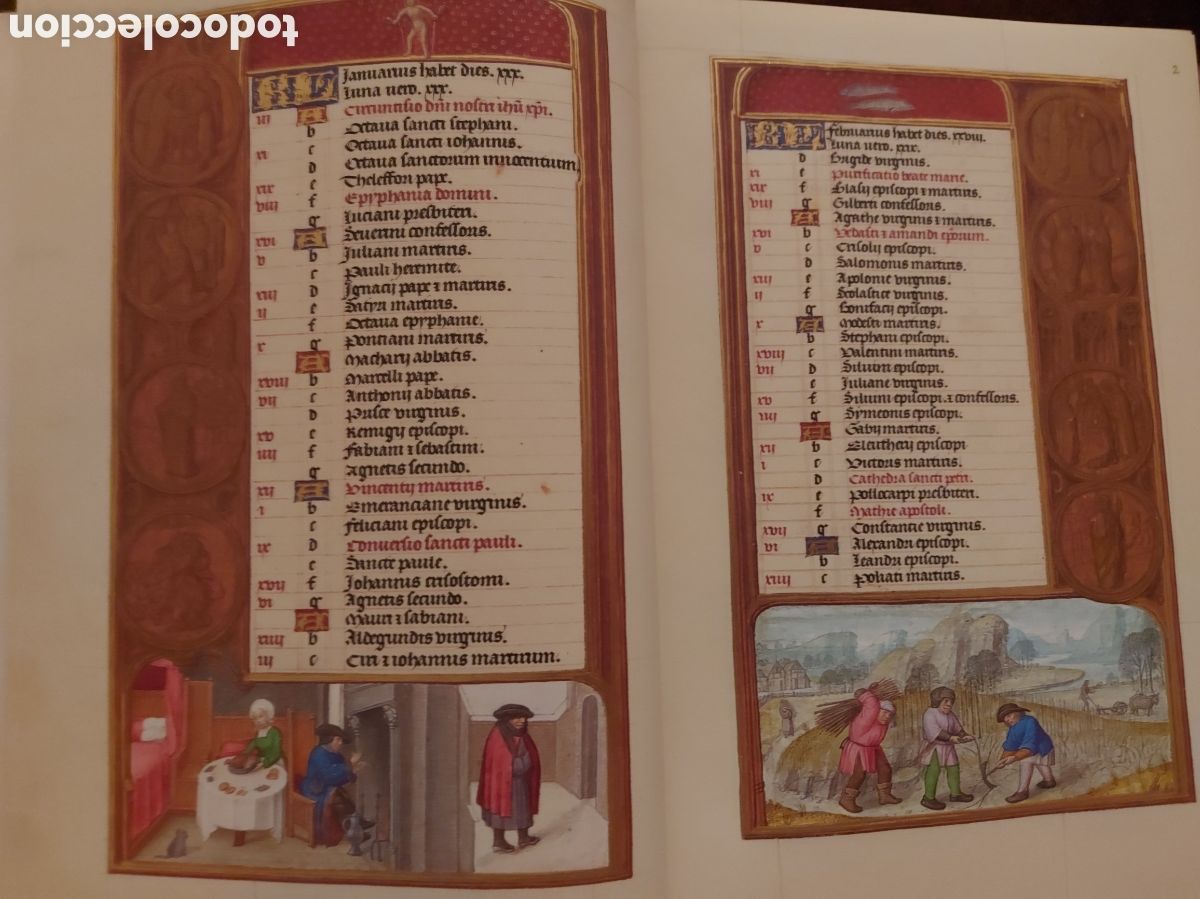 todocoleccion
KL Januarius habet dies. xxx.
Luna vero. xxx.
iii A Circuncisio dni nostri ihu xpi.
b Octava sancti stephani.
xi c Octava sancti iohannis.
D Octava sanctorum innocentium
xix e Theleffori pape.
viii f Epyphania domini.
g Luciani presbiteri.
xvi A Severini confessoris.
v b Juliani martiris.
c Pauli heremite.
xiii D Ignacij pape z martiris.
ii e Satyri martiris.
f Octava epyphanie.
x g Ponciani martiris.
A Macharij abbatis.
xviii b Marcelli pape.
vii c Anthonij abbatis.
D Prisce virginis.
xv e Remigij episcopi.
iiii f Fabiani z sebastini.
g Agnetis secundo.
xii A Vincentij martiris.
i b Emeranciane virginis.
c Feliciani episcopi.
ix D Conversio sancti pauli.
e Sancte paule.
xvii f Johannis crisostomi.
vi g Agnetis secundo.
A Mauri z sabiani.
xiiii b Aldegundis virginis.
iii c Ciri z iohannis martirum.
2
KL Februarius habet dies. xxviii.
Luna vero. xxix.
D Brigide virginis.
xi e Purificatio beate marie.
xix f Blasij episcopi z martiris.
viii g Gilberti confessoris.
A Agathe virginis z martiris.
xvi b Vedasti z amandi eporum.
v c Crisolij episcopi.
D Salomonis martiris.
xiii e Apolonie virginis.
ii f Scolastice virginis.
g Bonifacij episcopi.
x A Modesti martiris.
b Stephani episcopi.
xviii c Valentini martiris.
vii D Silvini episcopi.
e Juliane virginis.
xv f Silvini episcopi. z confessoris.
iiii g Symeonis episcopi.
A Gabij martiris.
xii b Eleutherij episcopi
i c Victoris martiris.
D Cathedra sancti petri.
ix e Pollocarpi presbiteri.
f Mathie apostoli.
xvii g Constantie virginis.
vi A Alexandri episcopi.
b Leandri episcopi.
xiiii c Poliati martiris.